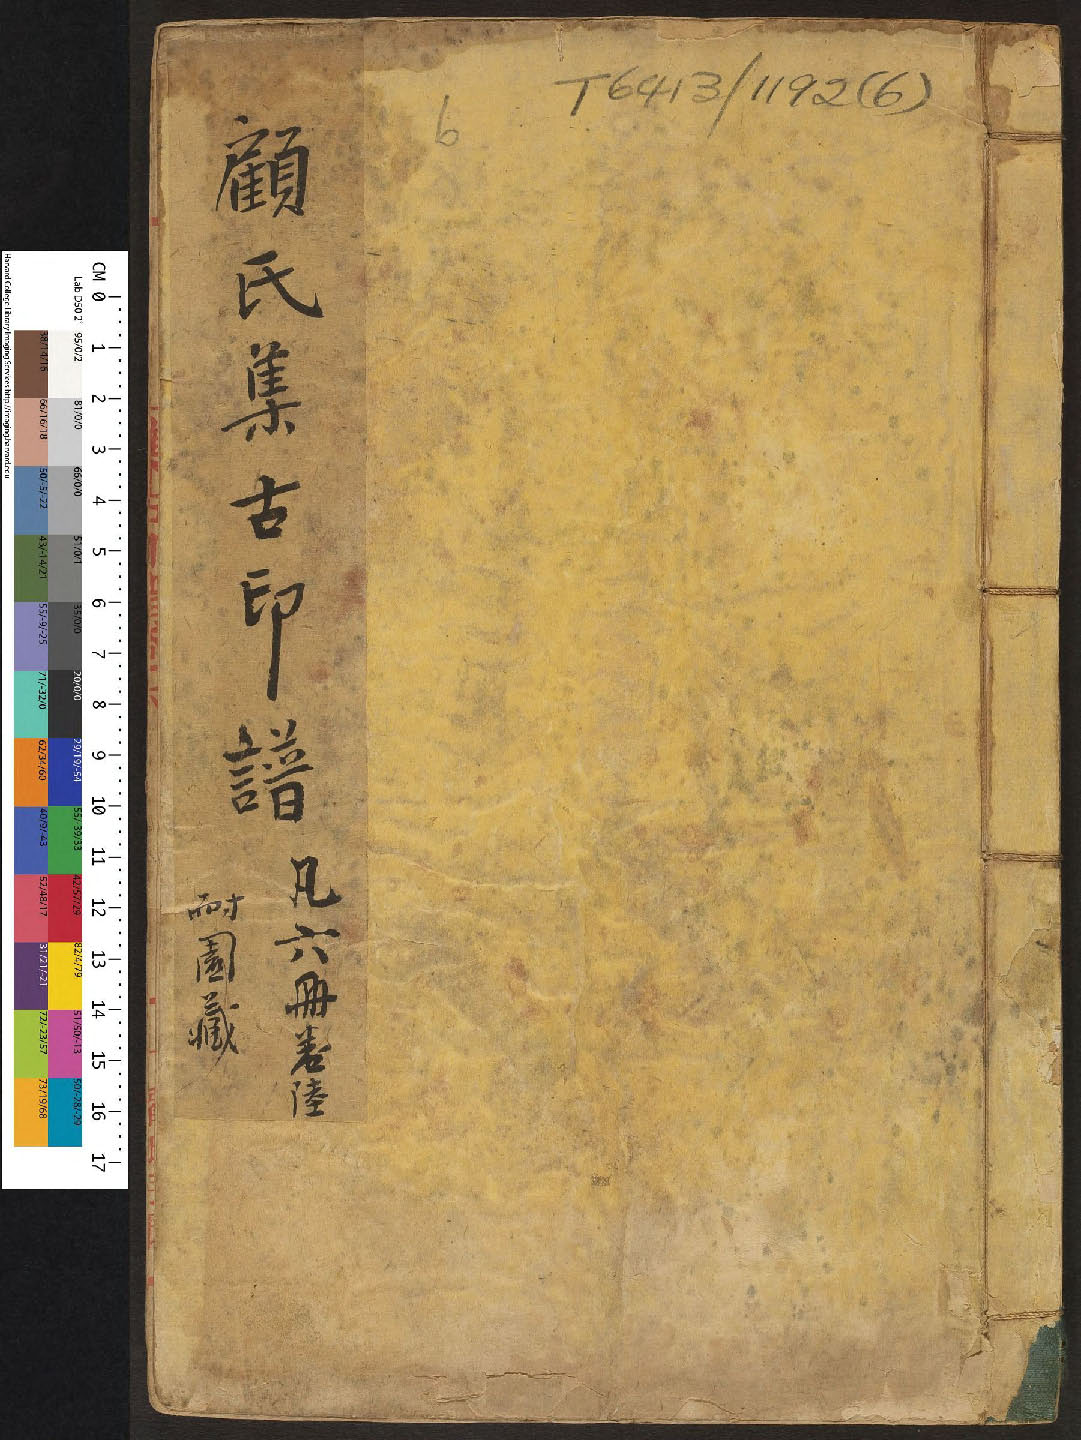 T6413/1192(6)
6
顧氏集古印譜
凡六冊卷陸
耐園藏
CM 0 1 2 3 4 5 6 7 8 9 10 11 12 13 14 15 16 17
Lab D50 2°
95/0/2
81/0/0
66/0/0
51/0/1
35/0/0
20/0/0
29/19/-54
55/-39/33
42/57/29
82/4/79
51/50/-13
50/-28/-29
38/14/16
66/16/18
50/-5/-22
43/-14/21
55/-9/-25
71/-32/0
62/34/60
40/9/-43
52/48/17
31/21/-21
72/-23/57
73/19/68
Harvard College Library Imaging Services http://imaging.harvard.edu